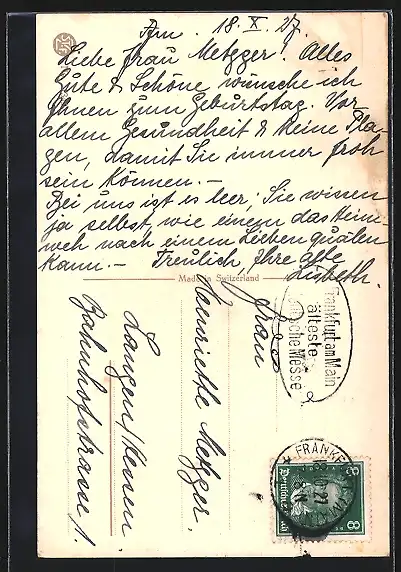 Ffm. 18. X. 27.
Liebe Frau Metzger! Alles
Gute & Schöne wünsche ich
Ihnen zum Geburtstag. Vor
allem Gesundheit & keine Pla-
gen, damit Sie immer froh
sein können. –
Bei uns ist es leer; Sie wissen
ja selbst, wie einem das Heim-
weh nach einem Lieben quälen
kann. – Treulich, Ihre alte
Lisbeth.
Made in Switzerland
Frau
Henriette Metzger.
Langen/Hessen
Bahnhofstrasse 1.
Frankfurt am Main
älteste
deutsche Messe
FRANKF
8 8